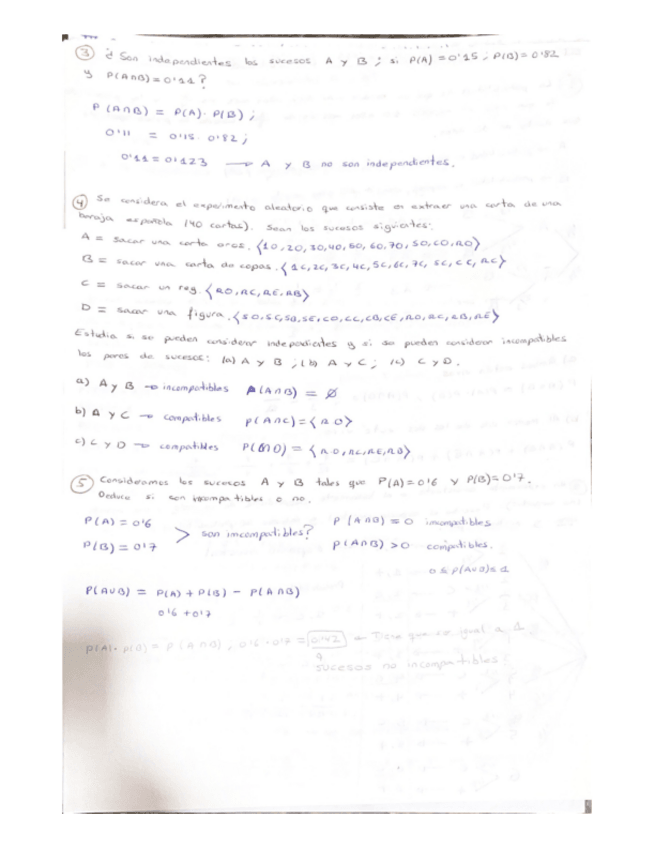 ③ ¿ Son independientes los sucesos A y B ; si P(A) = 0'15 ; P(B) = 0'82
y P(A∩B) = 0'11 ?
P (A∩B) = P(A) · P(B) ;
0'11 = 0'15 · 0'82 ;
0'11 = 0'123 → A y B no son independientes.
④ Se considera el experimento aleatorio que consiste en extraer una carta de una
baraja española (40 cartas). Sean los sucesos siguientes:
A = sacar una carta oros.
B = sacar una carta de copas.
C = sacar un rey. {RO, RC, RE, RB}
D = sacar una figura.
Estudia si se pueden considerar independientes y si se pueden considerar incompatibles
los pares de sucesos: (a) A y B ; (b) A y C ; (c) C y D.
a) A y B → incompatibles P(A∩B) = ∅
b) A y C → compatibles P(A∩C) = {RO}
c) C y D → compatibles
⑤ Consideramos los sucesos A y B tales que P(A) = 0'6 y P(B) = 0'7.
Deduce si son incompatibles o no.
P(A) = 0'6
> son imcompatibles?
P(B) = 0'7
P (A∩B) = 0 incompatibles
P (A∩B) > 0 compatibles.
0 ≤ P(A∪B) ≤ 1
P(A∪B) = P(A) + P(B) − P(A∩B)
0'6 + 0'7
P(A) · P(B) = P (A∩B) , 0'6 · 0'7 = 0'42 → Tiene que ser igual a 1.
sucesos no incompatibles